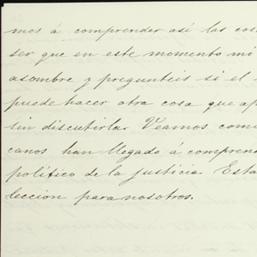 mos á comprender así las cos
ser que en este momento mi
asombre y pregunteis si el
puede hacer otra cosa que ap
sin discutirla. Veamos como
canos han llegado á comprend
político de la justicia. Esta
leccion para nosotros.